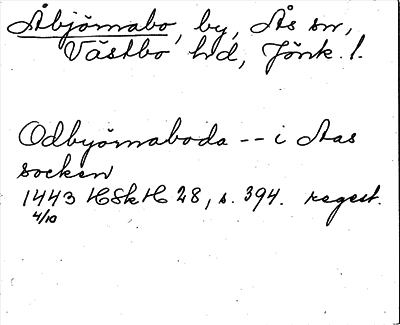 Åbjörnabo, by, Ås sn,
Västbo hd, Jönk. l.
Odbyörnaboda -- i Aas
socken
1443 HSkH 28, s. 394. regest.
4/10